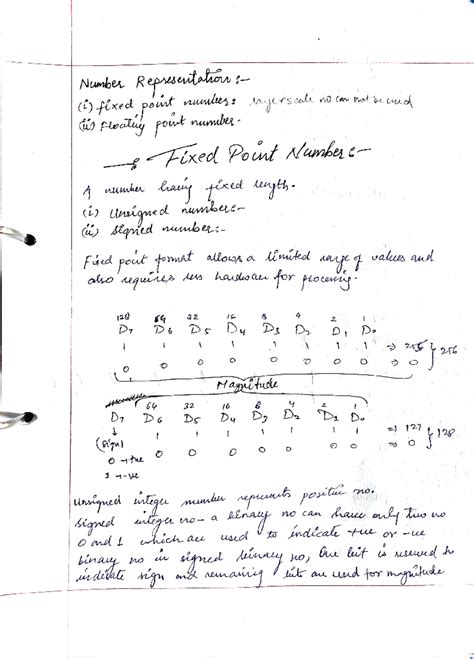 Number Representation :-
(i) fixed point numbers: large scale no can not be used
(ii) Floating point number.
Fixed Point Number :-
A number having fixed length.
(i) Unsigned number :-
(ii) Signed number :-
Fixed point format allows a limited range of values and
also requires less hardware for processing.
128 64 32 16 8 4 2 1
D7 D6 D5 D4 D3 D2 D1 D0
1 1 1 1 1 1 1 1 => 255 } 256
0 0 0 0 0 0 0 0 => 0
Magnitude
64 32 16 8 4 2 1
D7 D6 D5 D4 D3 D2 D1 D0
↓ 1 1 1 1 1 1 1 => 127 } 128
(sign) 0 0 0 0 0 0 0 => 0
0 → +ve
1 → -ve
Unsigned integer number represents positive no.
Signed integer no - a binary no can have only two no
0 and 1 which are used to indicate +ve or -ve
binary no in signed binary no, one bit is reserved to
indicate sign and remaining bits are used for magnitude